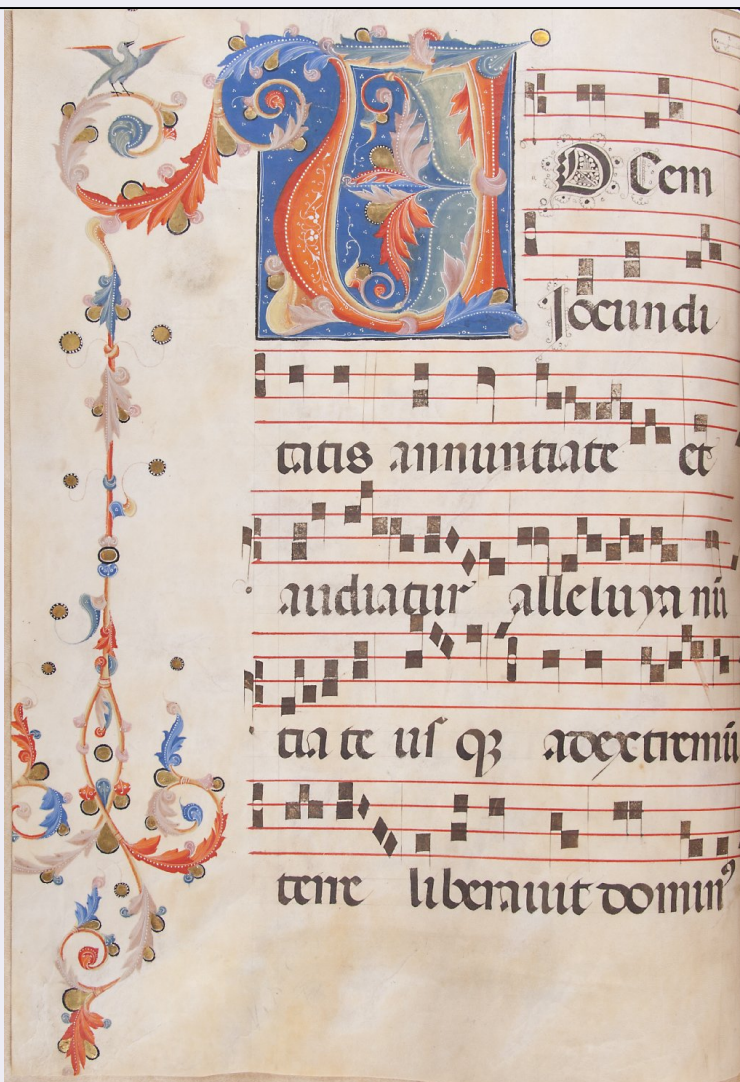 VOcem
Iocundi
tatis annuntiate et
audiatur alleluya nū
tia te usqꝫ adextremū
terre liberauit dominꝰ